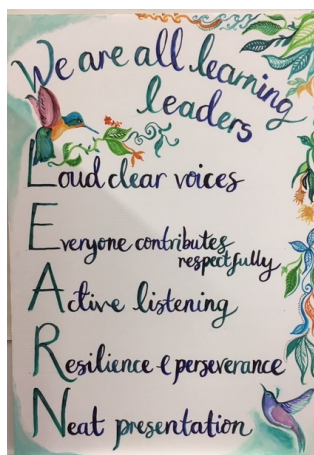 We are all learning
leaders
Loud clear voices
Everyone contributes
respectfully
Active listening
Resilience & perseverance
Neat presentation